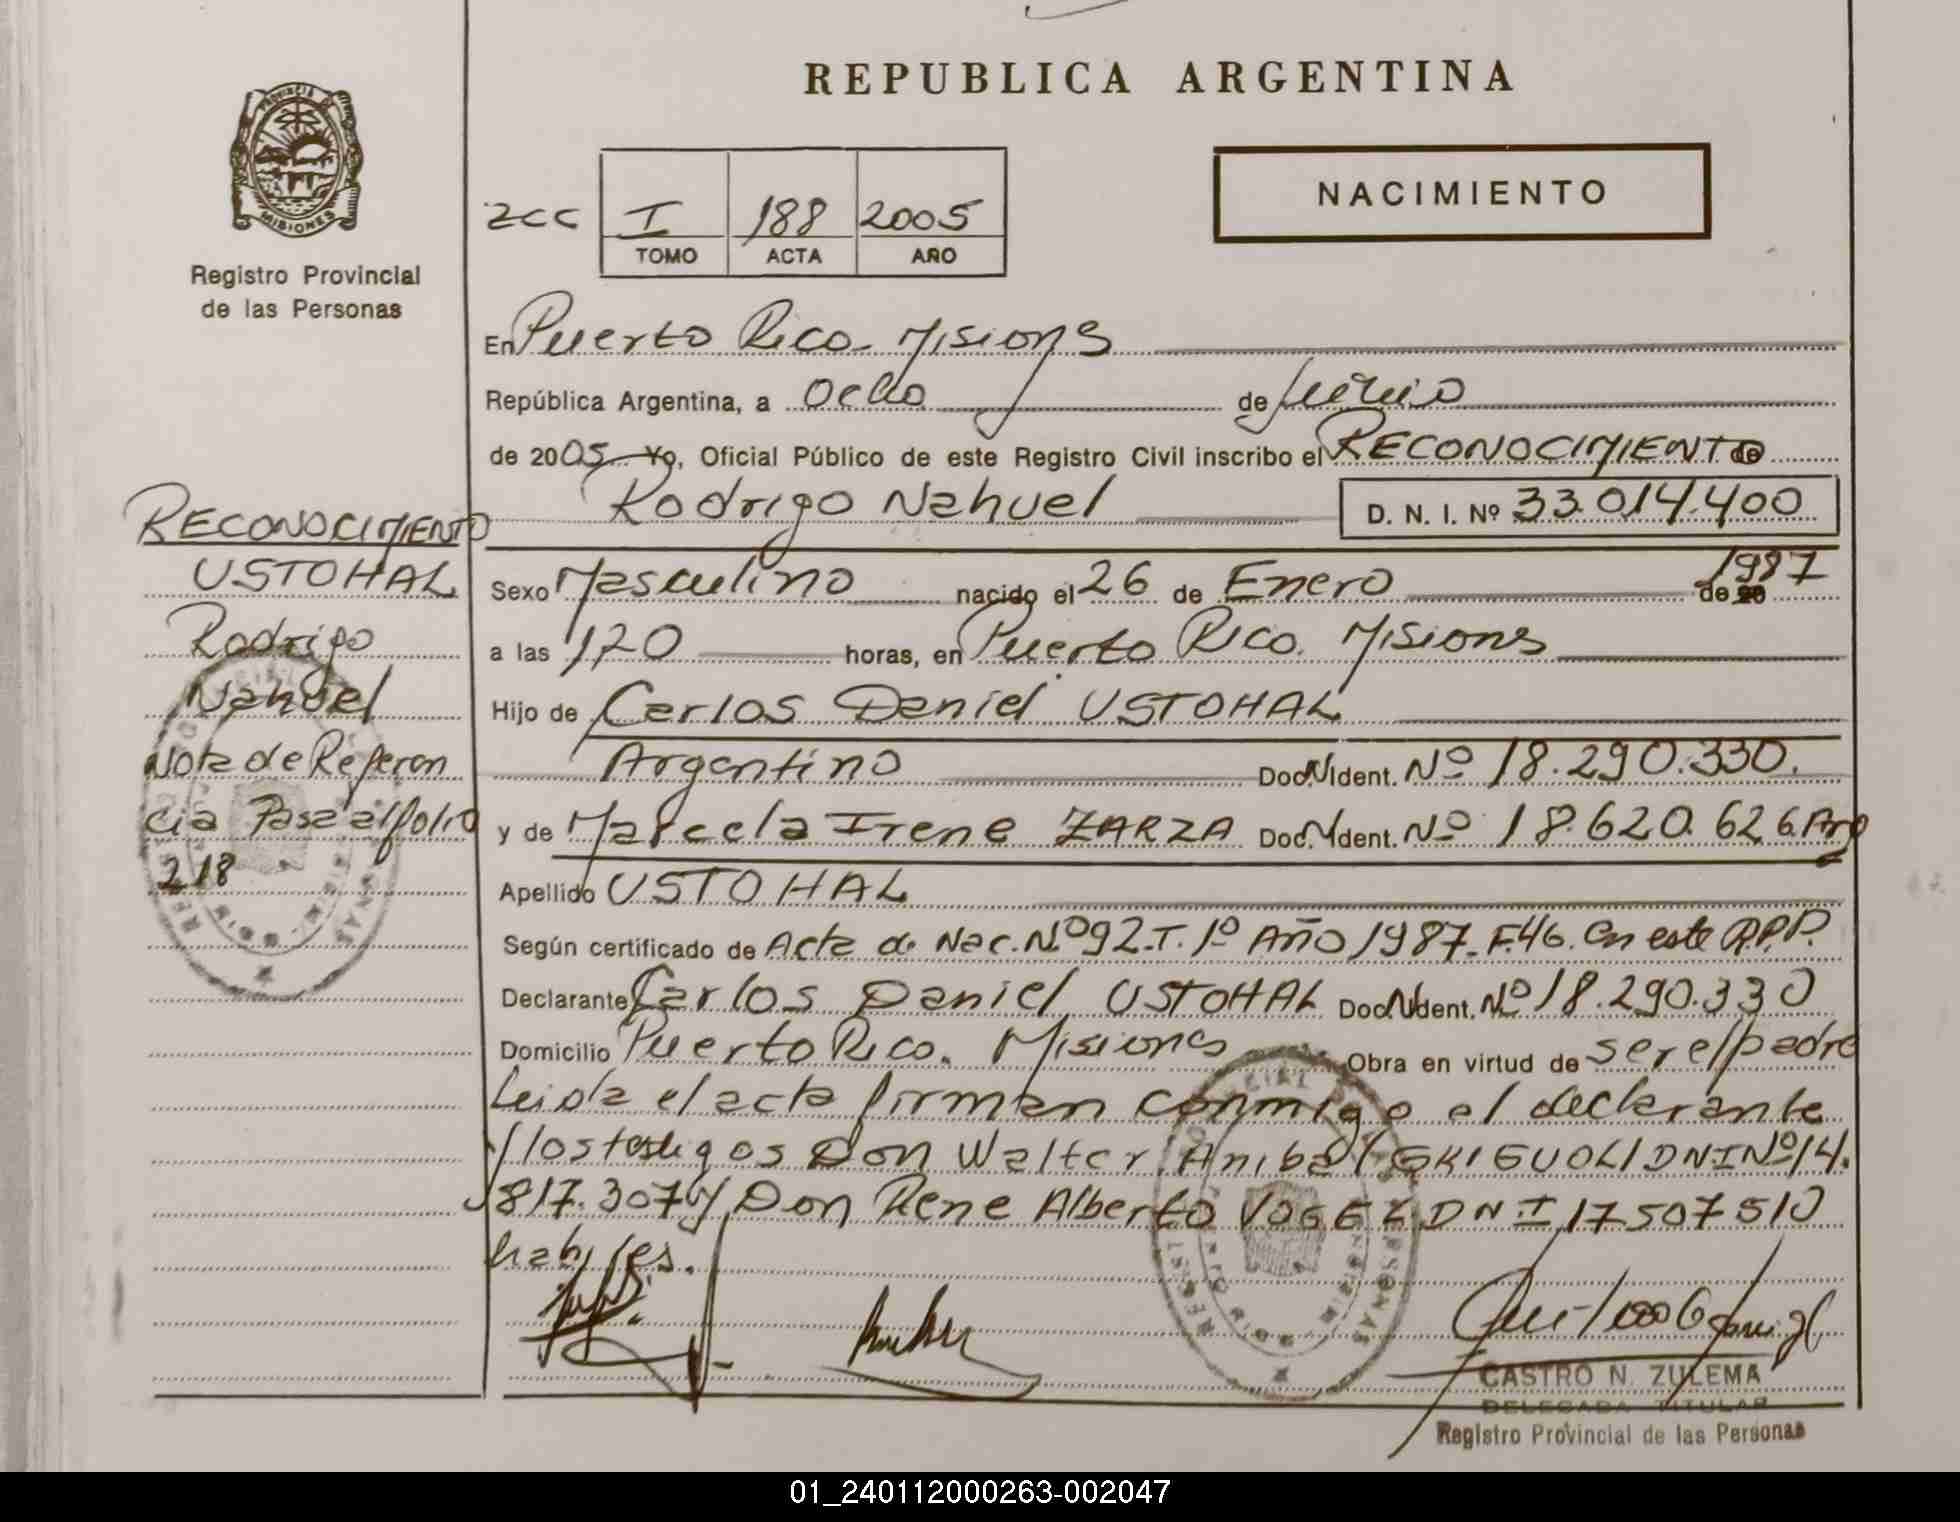 REPUBLICA ARGENTINA
PROVINCIA DE
MISIONES
Registro Provincial
de las Personas
NACIMIENTO
I 188 2005
TOMO ACTA AÑO
En Puerto Rico. Misiones
República Argentina, a Ocho de Junio
de 2005 Yo, Oficial Público de este Registro Civil inscribo el RECONOCIMIENTO de
Rodrigo Nahuel D. N. I. Nº 33.014.400
Sexo Masculino nacido el 26 de Enero de 1987
a las 1,20 horas, en Puerto Rico. Misiones
Hijo de Carlos Daniel USTOHAL
Argentino Doc. N Ident. Nº 18.290.330.
y de Marcela Irene ZARZA Doc. N Ident. Nº 18.620.626. Arg
Apellido USTOHAL
Según certificado de Acta de Nac. Nº 92. T. 1º Año 1987. F.46. En este R.P.P.
Declarante Carlos Daniel USTOHAL Doc. N Ident. Nº 18.290.330
Domicilio Puerto Rico. Misiones Obra en virtud de ser el padre
Leida el acta firman conmigo el declarante
y los testigos Don Walter Anibal DNI Nº 14.
817.307 y Don Rene Alberto VOGEL DNI 17507510
habiles.
RECONOCIMIENTO
USTOHAL
Rodrigo
Nahuel
Nota de Referen
cia Pasa al folio
218
CASTRO N. ZULEMA
DELEGADA TITULAR
Registro Provincial de las Personas
01_240112000263-002047